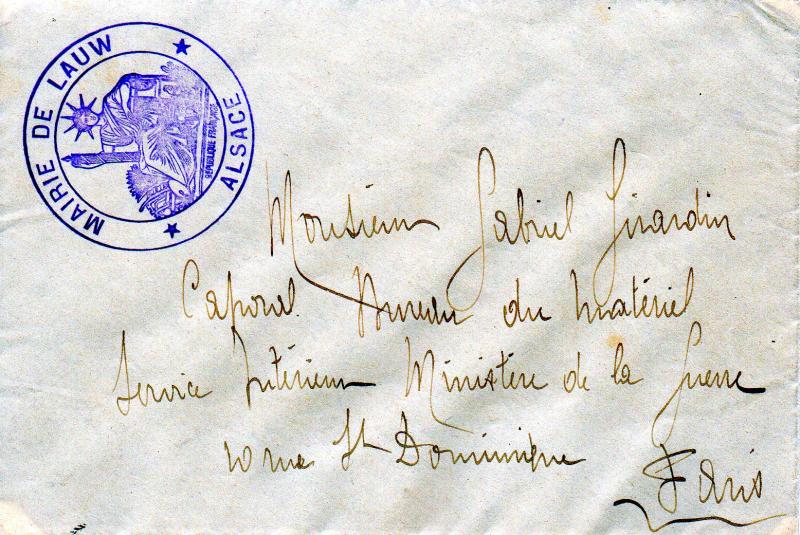 MAIRIE DE LAUW
ALSACE
REPUBLIQUE FRANÇAISE
Monsieur Gabriel Girardin
Caporal Bureau du matériel
Service Intérieur Ministère de la Guerre
10 rue St Dominique
Paris